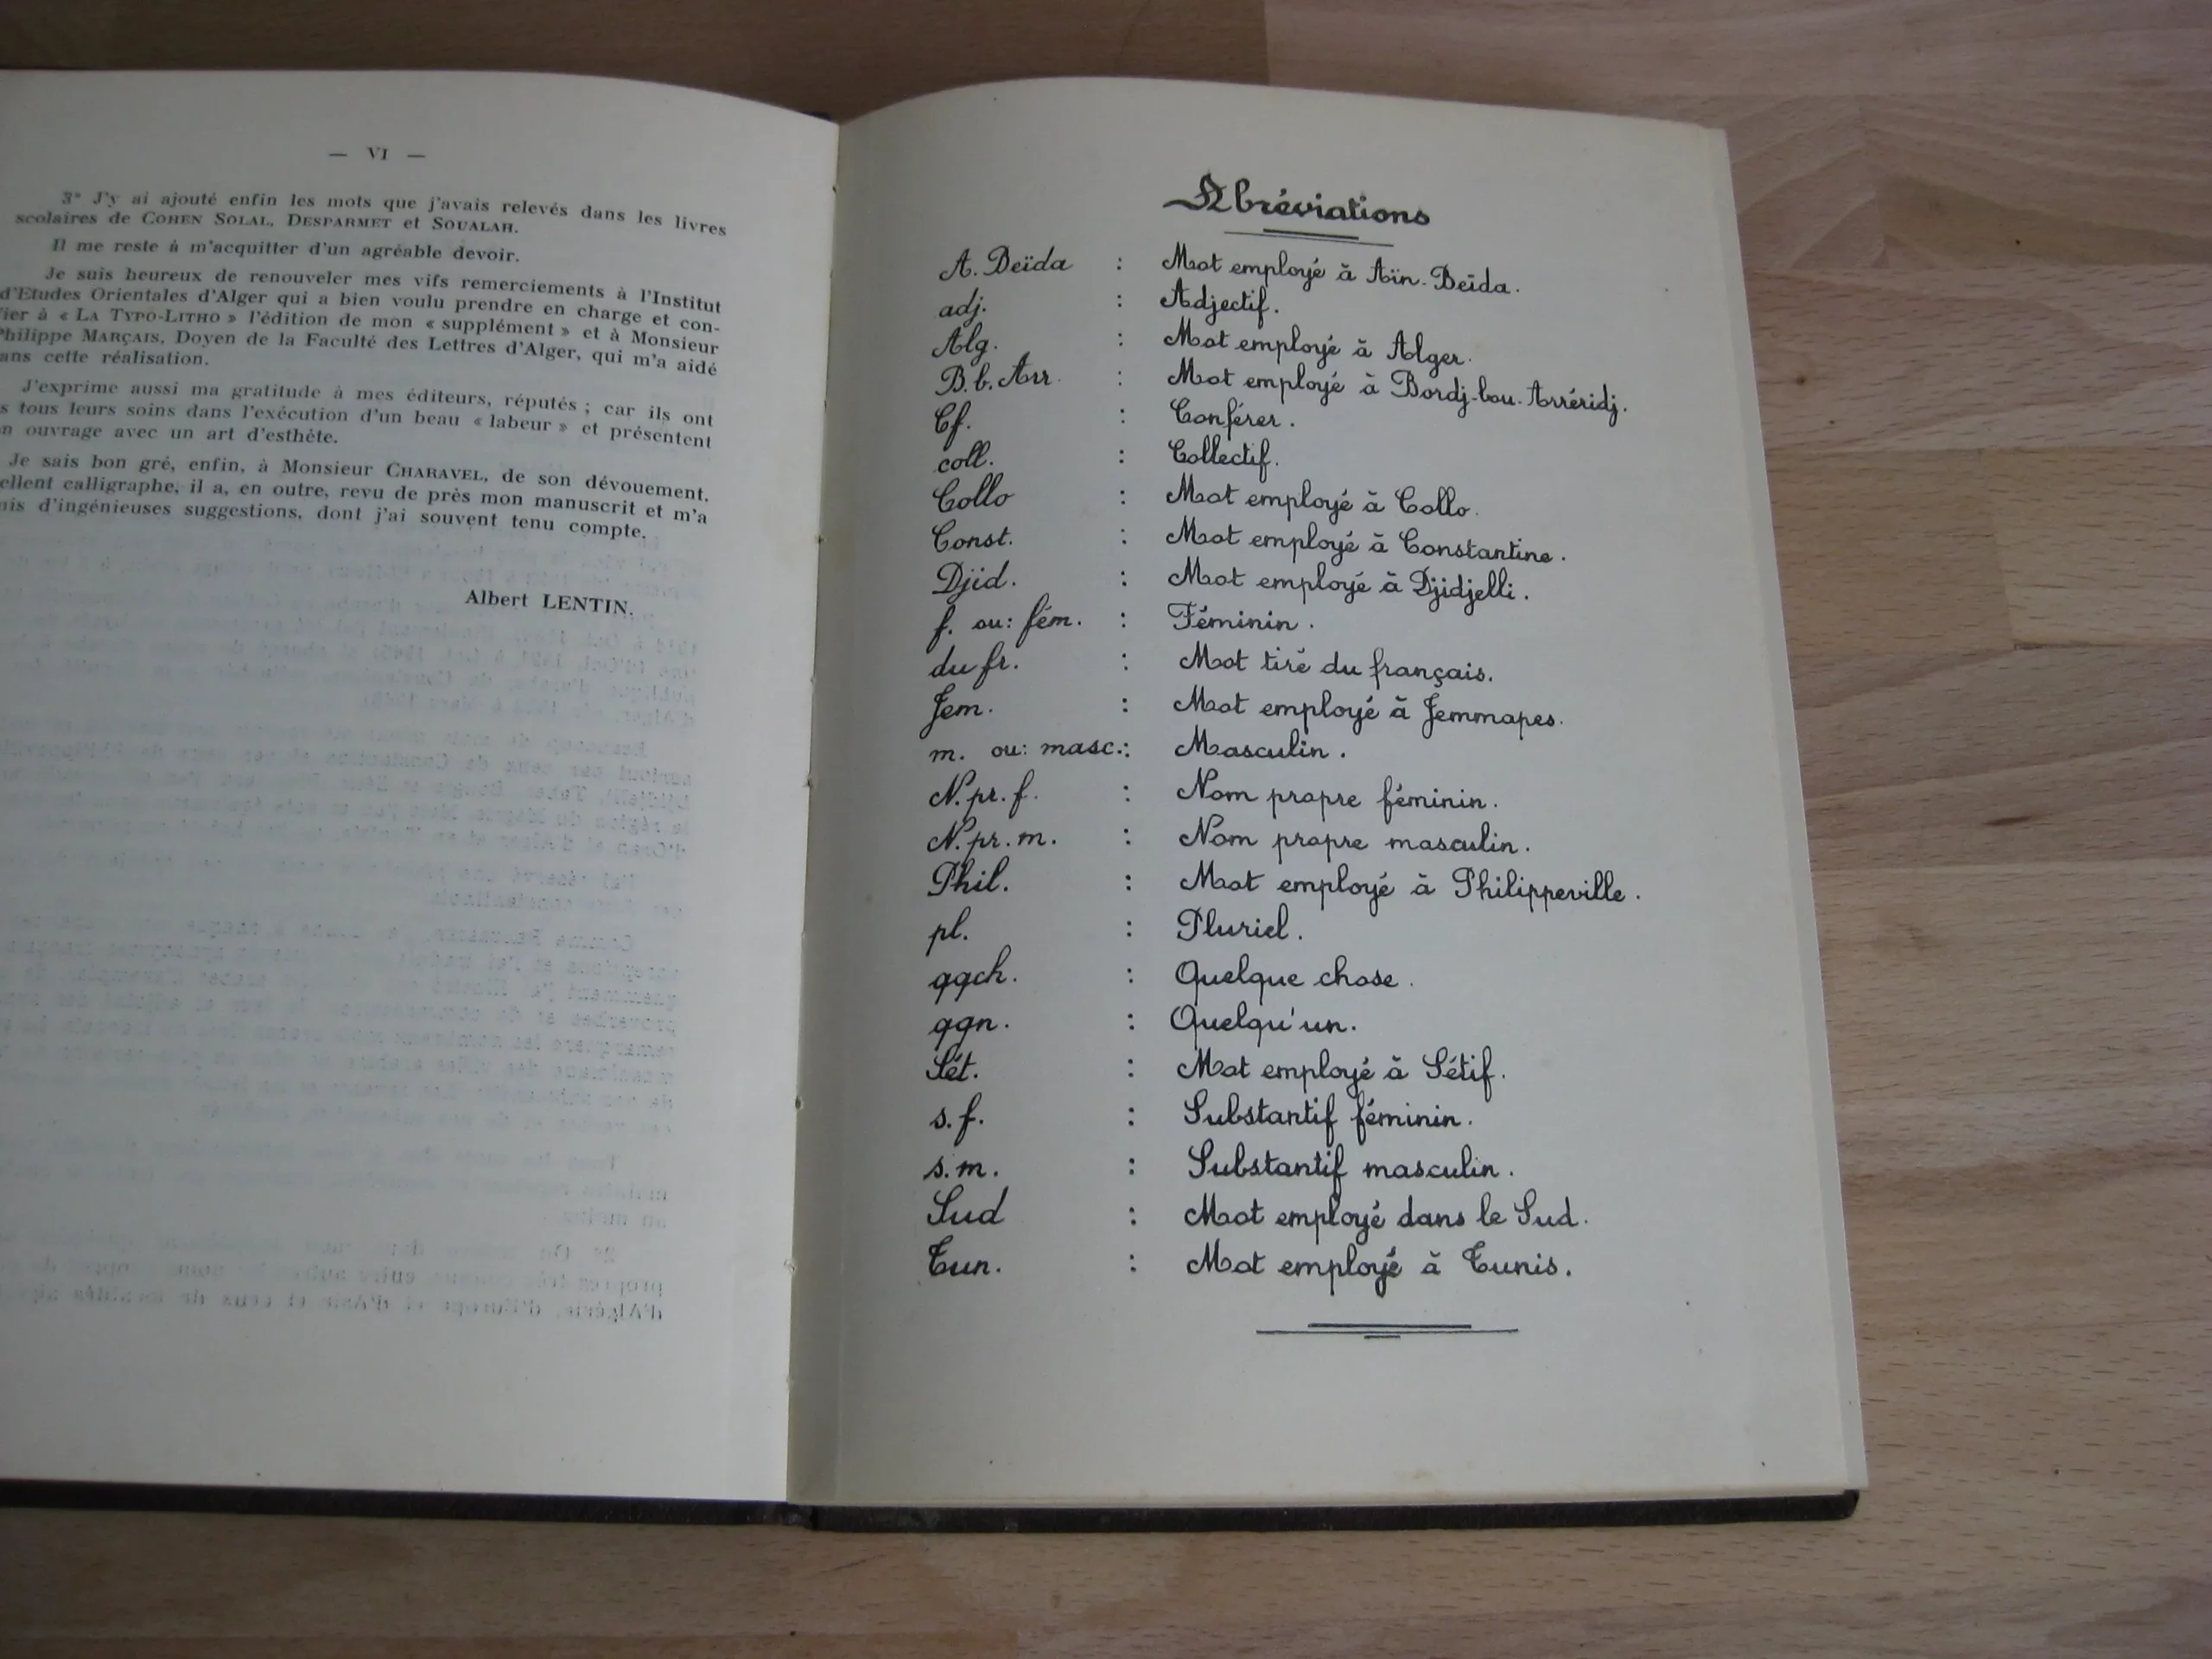 — VI —
3° J'y ai ajouté enfin les mots que j'avais relevés dans les livres
scolaires de COHEN SOLAL, DESPARMET et SOUALAH.
Il me reste à m'acquitter d'un agréable devoir.
Je suis heureux de renouveler mes vifs remerciements à l'Institut
d'Etudes Orientales d'Alger qui a bien voulu prendre en charge et con-
fier à « LA TYPO-LITHO » l'édition de mon « supplément » et à Monsieur
Philippe MARÇAIS, Doyen de la Faculté des Lettres d'Alger, qui m'a aidé
ans cette réalisation.
J'exprime aussi ma gratitude à mes éditeurs, réputés ; car ils ont
s tous leurs soins dans l'exécution d'un beau « labeur » et présentent
n ouvrage avec un art d'esthète.
Je sais bon gré, enfin, à Monsieur CHARAVEL, de son dévouement.
ellent calligraphe, il a, en outre, revu de près mon manuscrit et m'a
is d'ingénieuses suggestions, dont j'ai souvent tenu compte.
Albert LENTIN.
Abréviations
A. Beïda : Mot employé à Aïn-Beïda.
adj. : Adjectif.
Alg. : Mot employé à Alger.
B.b.Arr. : Mot employé à Bordj-bou-Arréridj.
Cf. : Conférer.
coll. : Collectif.
Collo : Mot employé à Collo.
Const. : Mot employé à Constantine.
Djid. : Mot employé à Djidjelli.
f. ou: fém. : Féminin.
du fr. : Mot tiré du français.
Jem. : Mot employé à Jemmapes.
m. ou: masc.: Masculin.
N.pr.f. : Nom propre féminin.
N.pr.m. : Nom propre masculin.
Phil. : Mot employé à Philippeville.
pl. : Pluriel.
qqch. : Quelque chose.
qqn. : Quelqu'un.
Sét. : Mot employé à Sétif.
s.f. : Substantif féminin.
s.m. : Substantif masculin.
Sud : Mot employé dans le Sud.
Tun. : Mot employé à Tunis.